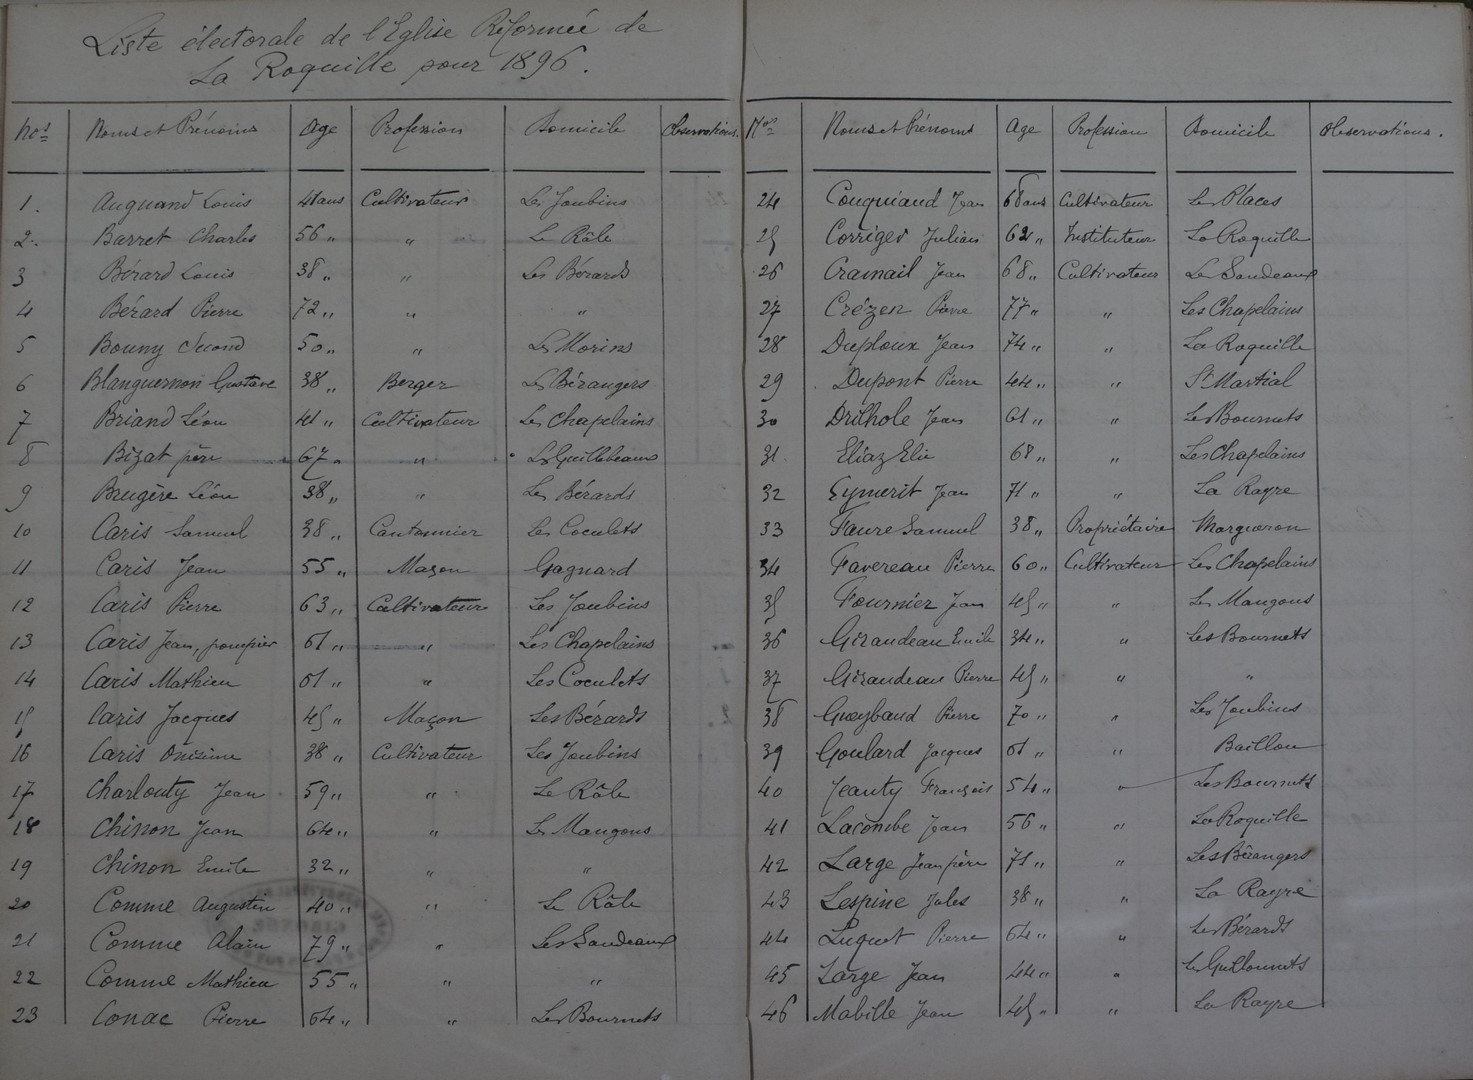 Liste électorale de l'Eglise Réformée de
La Roquille pour 1896.
Nos Noms et Prénoms Age Profession Domicile Observations.
1. Auguand Louis 41 ans Cultivateur Les Joubins
2. Barret Charles 56 " " Le Râle
3 Bérard Louis 38 " " Les Bérards
4 Bérard Pierre 72 " " "
5 Bouny Second 50 " " Les Morins
6 Blanguernon Gustave 38 " Berger Les Bérangers
7 Briand Léon 41 " Cultivateur Les Chapelains
8 Bizat père 67 " " Les Guillebeaux
9 Brugère Léon 38 " " Les Bérards
10 Caris Samuel 38 " Cantonnier Les Coculets
11 Caris Jean 55 " Maçon Gagnard
12 Caris Pierre 63 " Cultivateur Les Joubins
13 Caris Jean, pompier 61 " " Les Chapelains
14 Caris Mathieu 61 " " Les Coculets
15 Caris Jacques 45 " Maçon Les Bérards
16 Caris Onésime 38 " Cultivateur Les Joubins
17 Charlouty Jean 59 " " Le Râle
18 Chinon Jean 64 " " Les Maugons
19 Chinon Emile 32 " " "
20 Comme Augustin 40 " " Le Râle
21 Comme Alain 79 " " Les Saudeaux
22 Comme Mathieu 55 " " "
23 Conac Pierre 64 " " Les Bournets
Nos Noms et Prénoms Age Profession Domicile Observations.
24 Couquiaud Jean 68 ans Cultivateur Les Places
25 Corriger Julien 62 " Instituteur La Roquille
26 Cramail Jean 68 " Cultivateur Les Saudeaux
27 Crézen Pierre 77 " " Les Chapelains
28 Duploux Jean 74 " " La Roquille
29 Dupont Pierre 44 " " St Martial
30 Drilhole Jean 61 " " Les Bournets
31 Eliaz Elie 68 " " Les Chapelains
32 Eymerit Jean 71 " " La Rayre
33 Faure Samuel 38 " Propriétaire Margueron
34 Favereau Pierre 60 " Cultivateur Les Chapelains
35 Fournier Jean 45 " " Les Maugons
36 Giraudeau Emile 34 " " Les Bournets
37 Giraudeau Pierre 45 " " "
38 Gueybaud Pierre 70 " " Les Joubins
39 Goulard Jacques 61 " " Baillou
40 Jeanty François 54 " " Les Bournets
41 Lacombe Jean 56 " " La Roquille
42 Large Jean père 71 " " Les Bérangers
43 Lespine Jules 38 " " La Rayre
44 Luquot Pierre 64 " " Les Bérards
45 Large Jean 44 " " Les Guillonnets
46 Mabille Jean 45 " " La Rayre